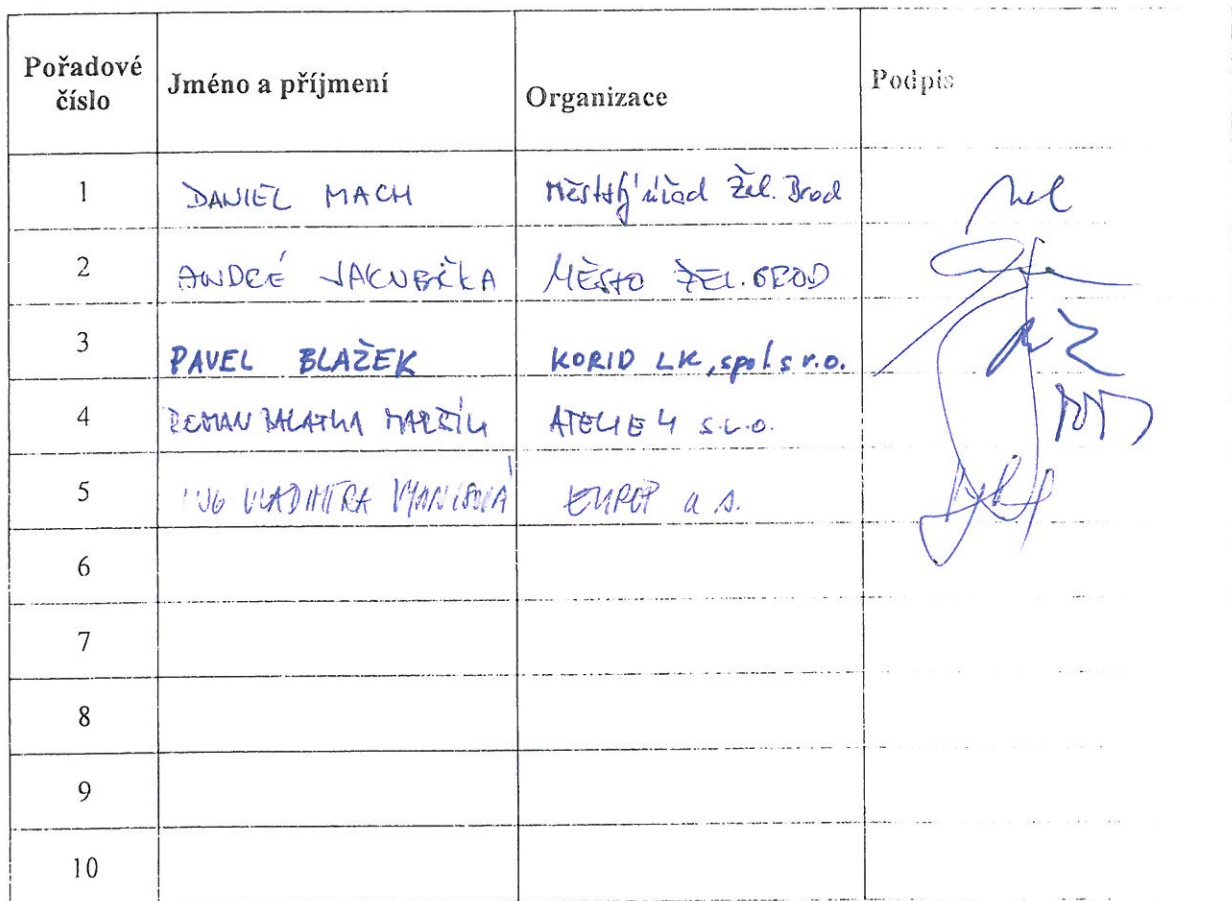 Pořadové číslo Jméno a příjmení Organizace Podpis
1 DANIEL MACH Městský úřad Žel. Brod
2 ANDRÉ JAKUBIČKA MĚSTO ŽEL. BROD
3 PAVEL BLAŽEK KORID LK, spol. s r.o.
4 ROMAN ATELIE 4 s.r.o.
5 ING VLADIMÍRA a.s.
6
7
8
9
10